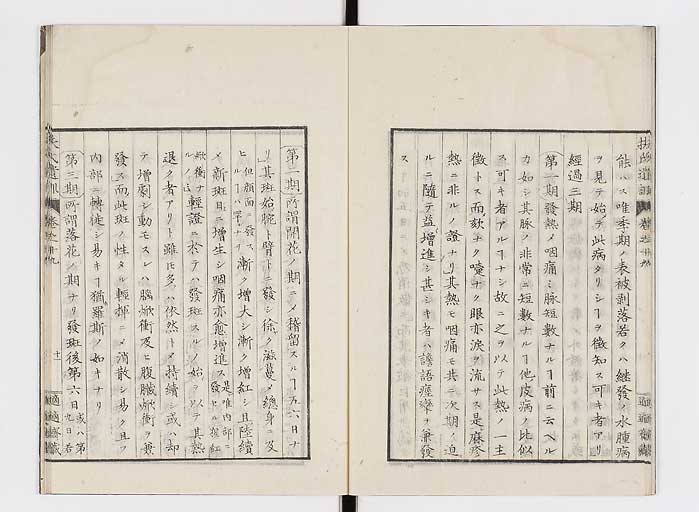 能ハス唯季期ノ表被剥落若クハ継發ノ水腫病
ヲ見テ始テ此病タリシヿヲ徴知ス可キ者アリ
經過三期
第一期發熱メ咽痛ミ脉短數ナルヿ前ニ云ヘル
カ如シ其脉ノ非常ニ短數ナルヿ他皮病ノ比似
ス可キ者アルヿナシ故ニ之ヲ以テ此熱ノ一主
徴トス而メ欬ナク嚔ナク眼亦淚ヲ流サス是麻疹
熱ニ非ルノ證ナリ其熱モ咽痛モ共ニ次期ノ迫
ルニ隨テ益增進シ甚シキ者ハ譫語痙攣ヲ兼發
ス
第二期所謂開花ノ期ニメ稽留スルヿ五六日ナ
リ其斑始腕ト臂トニ發シ徐ク滋蔓メ總身ニ及
ヒ但顔面ニ發スルヿハ罕ナリ漸ク增大シ漸ク增紅シ且陸續
メ新斑ヲ增生シ咽痛亦愈增進ス
輕證ニ於テハ發斑スルノ始ヲ以テ其熱
退ク者アリト雖𪜈多ハ依然トメ持續シ或ハ却
テ增劇シ動モスレハ腦焮衝及ヒ腹臟焮衝ヲ兼
發ス而此斑ノ性タル輕揮ニメ消散シ易ク且ツ
内部ニ轉徙シ易キヿ猶羅斯ノ如キナリ
第三期所謂落花ノ期ナリ發斑後第六日或ハ第九日ニ
扶氏遺訓
卷之十九
十一
適適齋藏